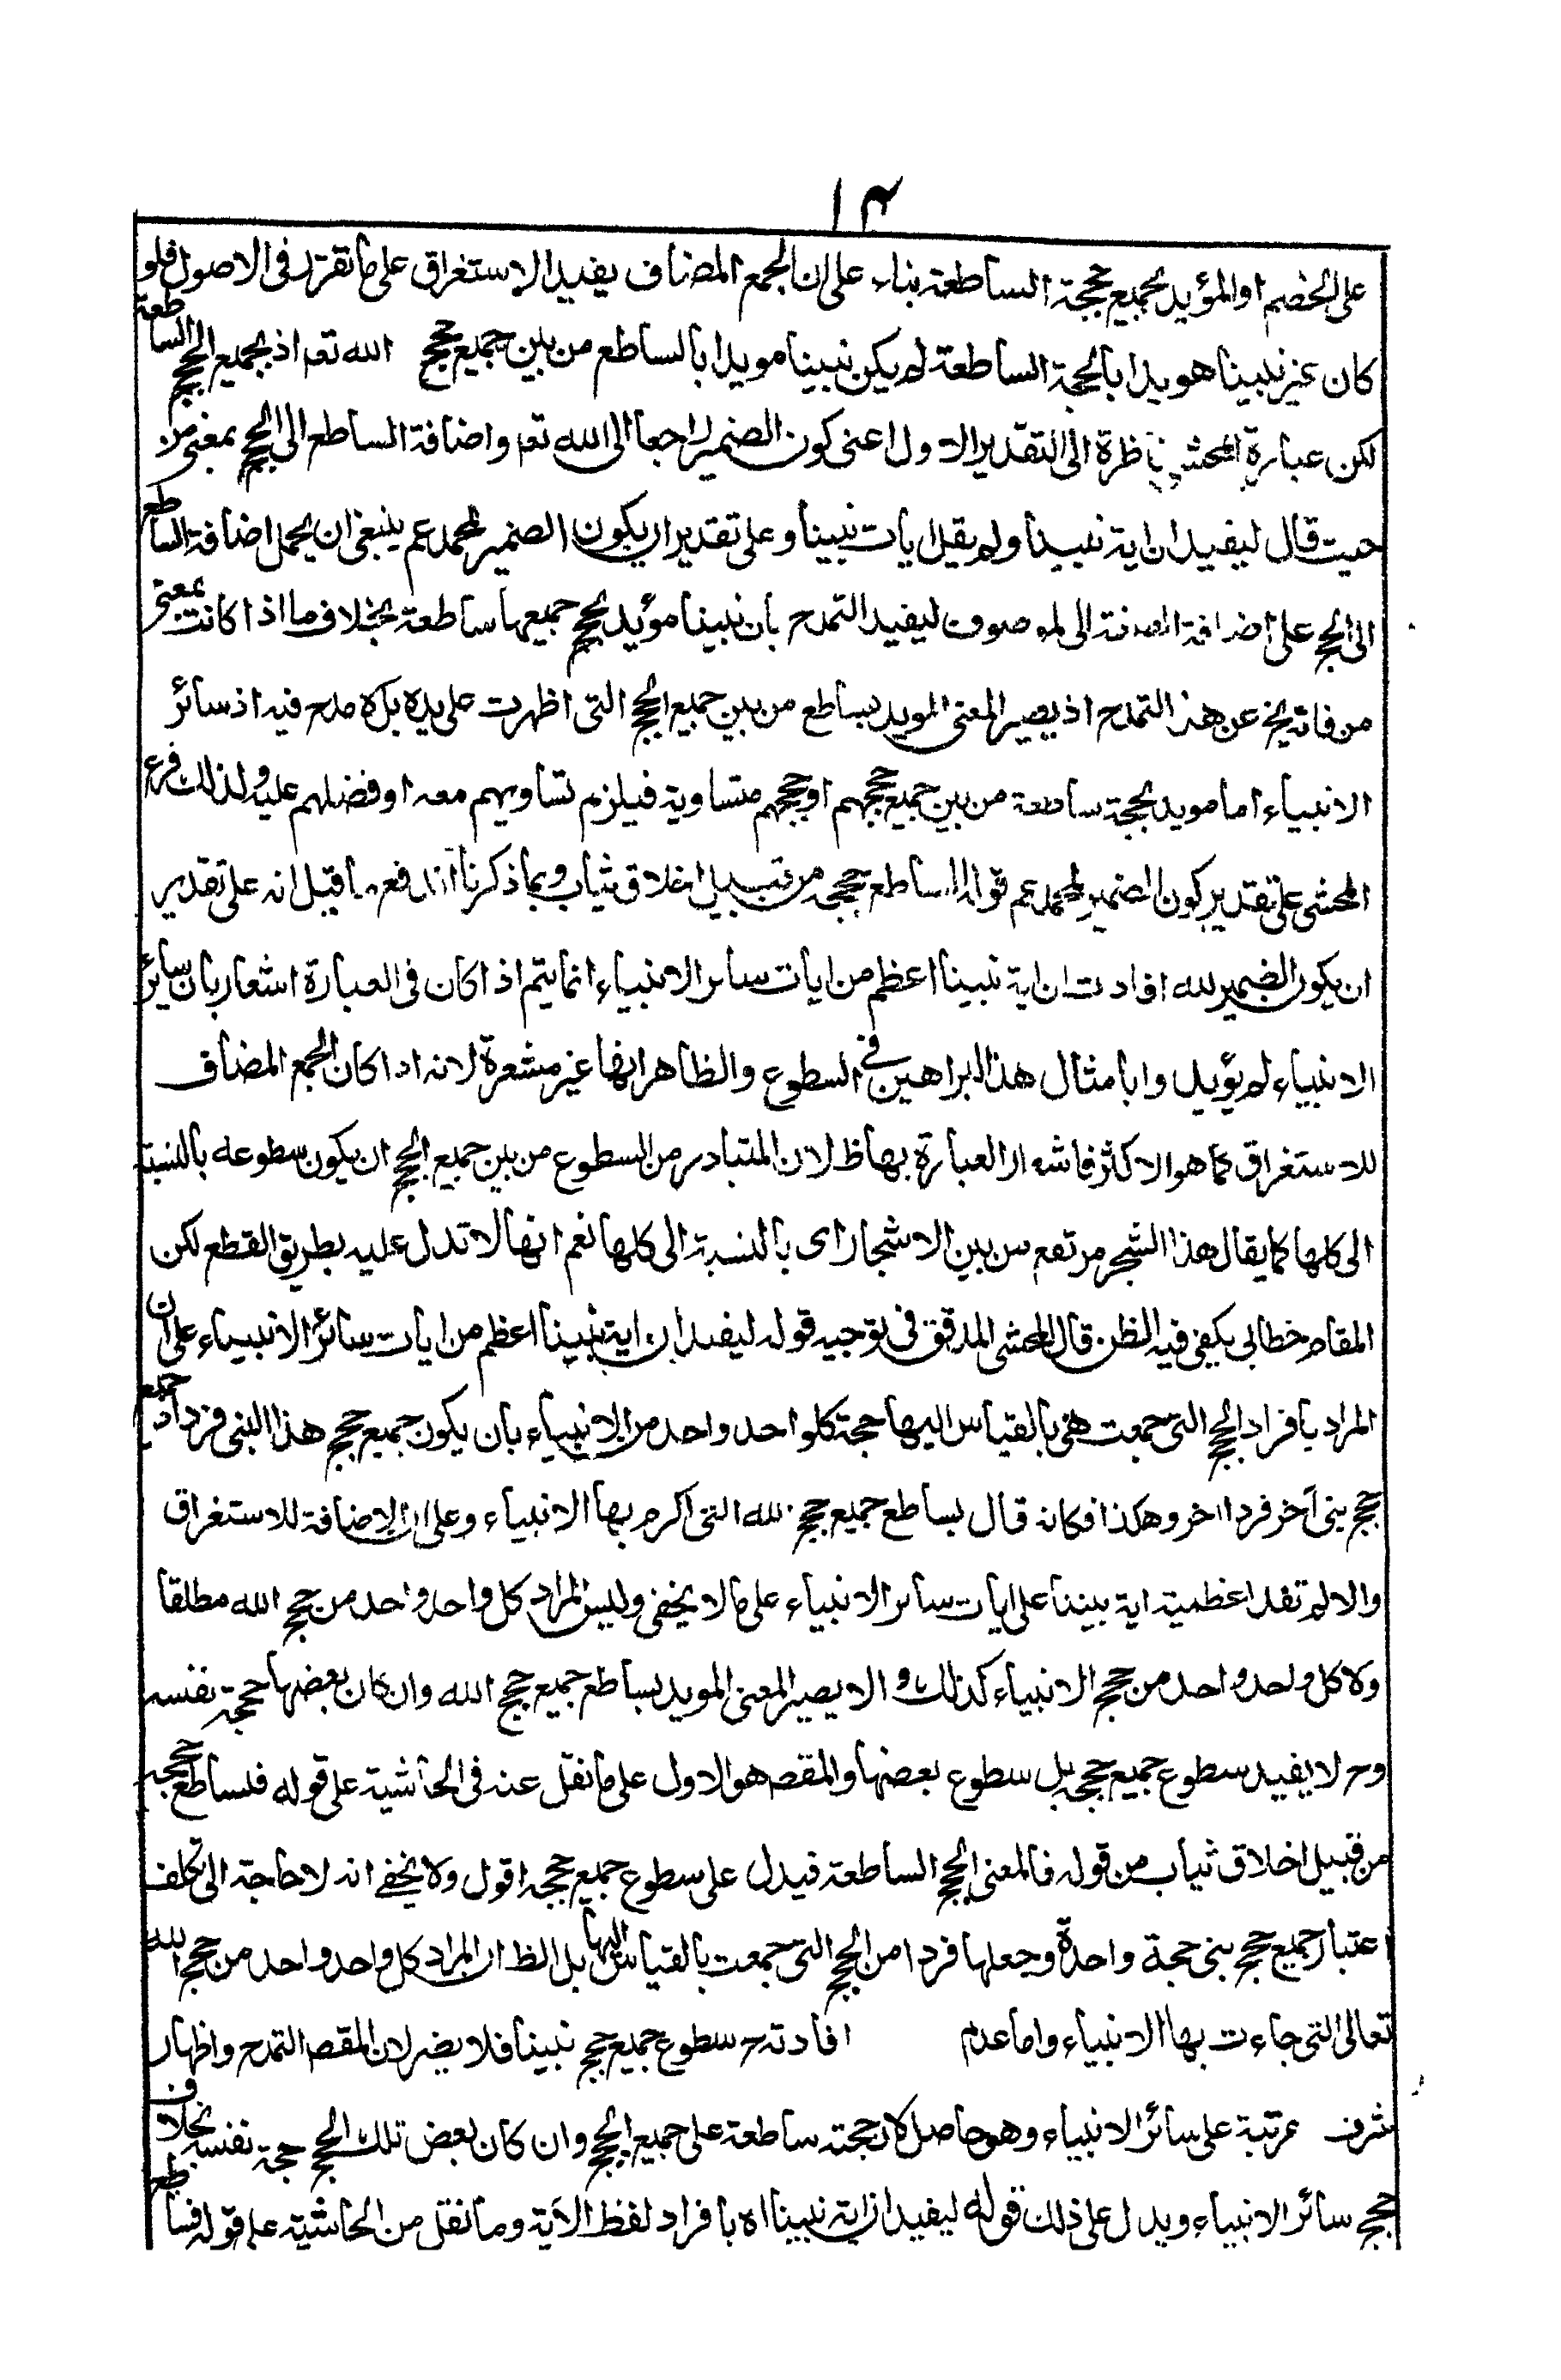 ١٣
على الخصم او المؤيد بجميع حججة الساطعة بناء على ان الجمع المضاف يفيد الاستغراق على ما تقرر فى الاصول فلو
كان غير نبينا مويدا بالحجة الساطعة لم يكن نبينا مويدا بالساطع من بين جميع حجج الله تعم اذ بجميع الحجج الساطعة
لكن عبارة المحشى ناظرة الى التقدير الاول اعنى كون الضمير راجعا الى الله تعم واضافة الساطع الى الحجج بمعنى من
حيث قال ليفيد ان اية نبينا ولم يقل ايات نبينا وعلى تقدير ان يكون الضمير لمحمد عم ينبغى ان يحمل اضافة الساطع
الى الحجج على اضافة الصفة الى الموصوف ليفيد التمدح بان نبينا مؤيد بحجج جميعها ساطعة بخلاف ما اذا كانت بمعنى
من فانه يخ عن هذا التمدح اذ يصير المعنى المويد بساطع من بين جميع الحجج التى اظهرت على يده بل لا مدح فيه اذ سائر
الانبياء اما مويد بحجة ساطعة من بين جميع حججهم او حججهم متساوية فيلزم تساويهم معه او فضلهم عليه ولذلك فرع
المحشى على تقدير كون الضمير لمحمد عم قوله الساطع حججه من قبيل اخلاق ثياب وبما ذكرنا اندفع ما قيل انه على تقدير
ان يكون الضمير لله افادت ان اية نبينا اعظم من ايات سائر الانبياء انما يتم اذا كان فى العبارة اشعار بان سائر
الانبياء لم يؤيدوا بامثال هذا البراهين فى السطوع والظاهر انها غير مشعرة لانه اذا كان الجمع المضاف
للاستغراق كما هو الاكثر فاشعار العبارة بها ظ لان المتبادر من السطوع من بين جميع الحجج ان يكون سطوعه بالنسبة
الى كلها كما يقال هذا الشجر مرتفع من بين الاشجار اى بالنسبة الى كلها نعم انها لا تدل عليه بطريق القطع لكن
المقام خطابى يكفى فيه الظن قال المحشى المدقق فى توجيه قوله ليفيد ان اية نبينا اعظم من ايات سائر الانبياء على ان
المراد بافراد الحجج التى جمعت هى بالقياس اليها حجة كل واحد واحد من الانبياء بان يكون جميع حجج هذا النبى فردا وجميع
حجج نبى آخر فردا اخر وهكذا فكانه قال بساطع جميع حجج الله التى اكرم بها الانبياء وعلى ان الاضافة للاستغراق
والا لم تفد اعظمية اية نبينا على ايات سائر الانبياء على ما لا يخفى وليس المراد كل واحد واحد من حجج الله مطلقا
ولا كل واحد واحد من حجج الانبياء كذلك والا يصير المعنى المويد بساطع جميع حجج الله وان كان بعضها حجة نفسه
وح لا يفيد سطوع جميع حججه بل سطوع بعضها والمقصم هو الاول على ما نقل عنه فى الحاشية على قوله فلساطع حججه
من قبيل اخلاق ثياب من قوله فالمعنى الحجج الساطعة فيدل على سطوع جميع حججه اقول ولا يخفى انه لا حاجة الى تكلف
اعتبار جميع حجج نبى حجة واحدة وجعلها فردا من الحجج التى جمعت بالقياس اليها بل الظ ان المراد كل واحد واحد من حجج الله
تعالى التى جاءت بها الانبياء واما عدم افادته ح سطوع جميع حجج نبينا فلا يضر لان المقصم التمدح واظهار
شرف مرتبة على سائر الانبياء وهو حاصل لان حجته ساطعة على جميع الحجج وان كان بعض تلك الحجج حجة نفسه بخلاف
حجج سائر الانبياء ويدل على ذلك قوله ليفيد ان اية نبينا اه بافراد لفظ الآية وما نقل من الحاشية على قوله فساطع